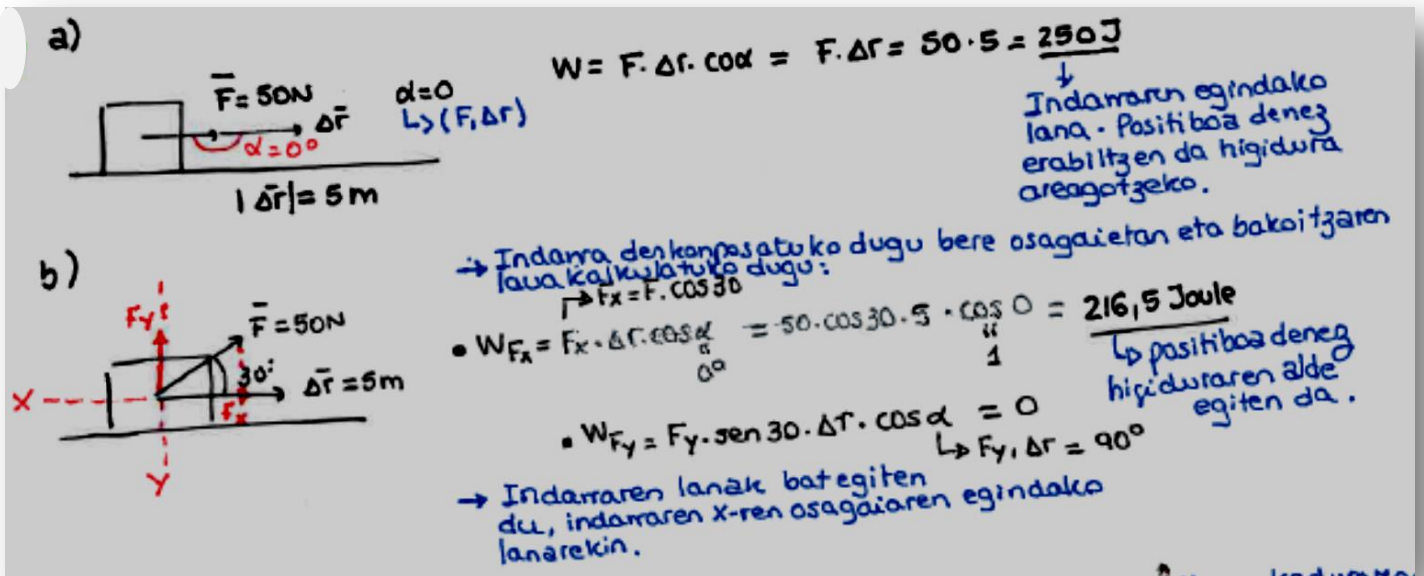 a)
F = 50N
Δr
α=0°
|Δr| = 5m
α=0
↳(F, Δr)
W = F·Δr·coα = F·Δr = 50·5 = 250J
↓
Indarraren egindako
lana. Positiboa denez
erabiltzen da higidura
areagotzeko.
b)
Fy
F = 50N
30°
Δr = 5m
X
Fx
Y
→ Indarra deskonposatuko dugu bere osagaietan eta bakoitzaren
laua kalkulatuko dugu:
↱Fx = F·COS30
• WFx = Fx·Δr·cosα = 50·cos30·5·cos0 = 216,5 Joule
0°
1
↳ positiboa denez
higiduraren alde
egiten da.
• WFy = Fy·sen30·Δr·cosα = 0
↳ Fy, Δr = 90°
→ Indarraren lanak bat egiten
du, indarraren x-ren osagaiaren egindako
lanarekin.